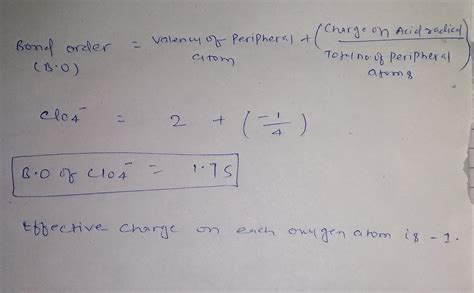 Bond order = Valency of Peripheral atom + (Charge on Acid radical / Total no of Peripheral atoms)
(B.O)
ClO4⁻ = 2 + (-1/4)
B.O of ClO4⁻ = 1.75
Effective charge on each oxygen atom is -1.